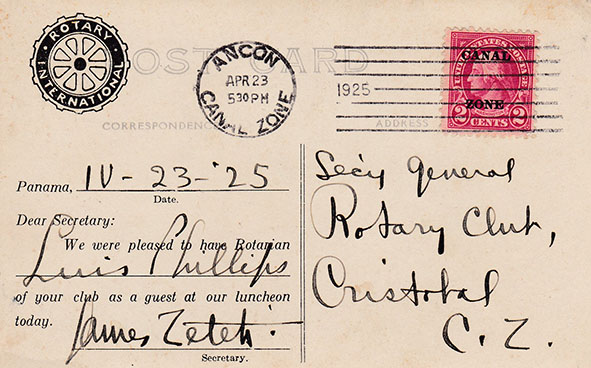 ROTARY
INTERNATIONAL
POST CARD
ANCON
APR 23
5 30 PM
CANAL ZONE
1925
UNITED STATES POSTAGE
CANAL
ZONE
2 CENTS 2
CORRESPONDENCE
ADDRESS
Panama, IV - 23 - '25
Date.
Dear Secretary:
We were pleased to have Rotarian
Luis Phillips
of your club as a guest at our luncheon
today. James Zetek.
Secretary.
Sec'y General
Rotary Club,
Cristobal
C. Z.